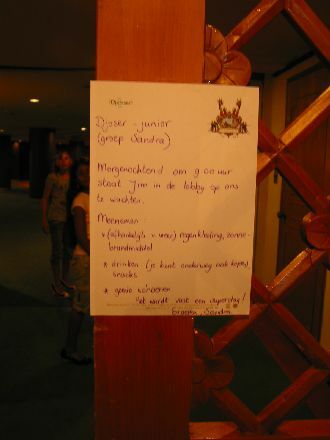 Djoser
Djoser - junior
(groep Sandra)
Morgenochtend om 9.00 uur
staat Jim in de lobby op ons
te wachten.
Meenemen:
* (afhankelijk v. weer) regenkleding, zonne-
brandmiddel
* drinken (je kunt onderweg ook kopen)
snacks
* goeie schoenen
Het wordt vast een superdag!
Groeten, Sandra